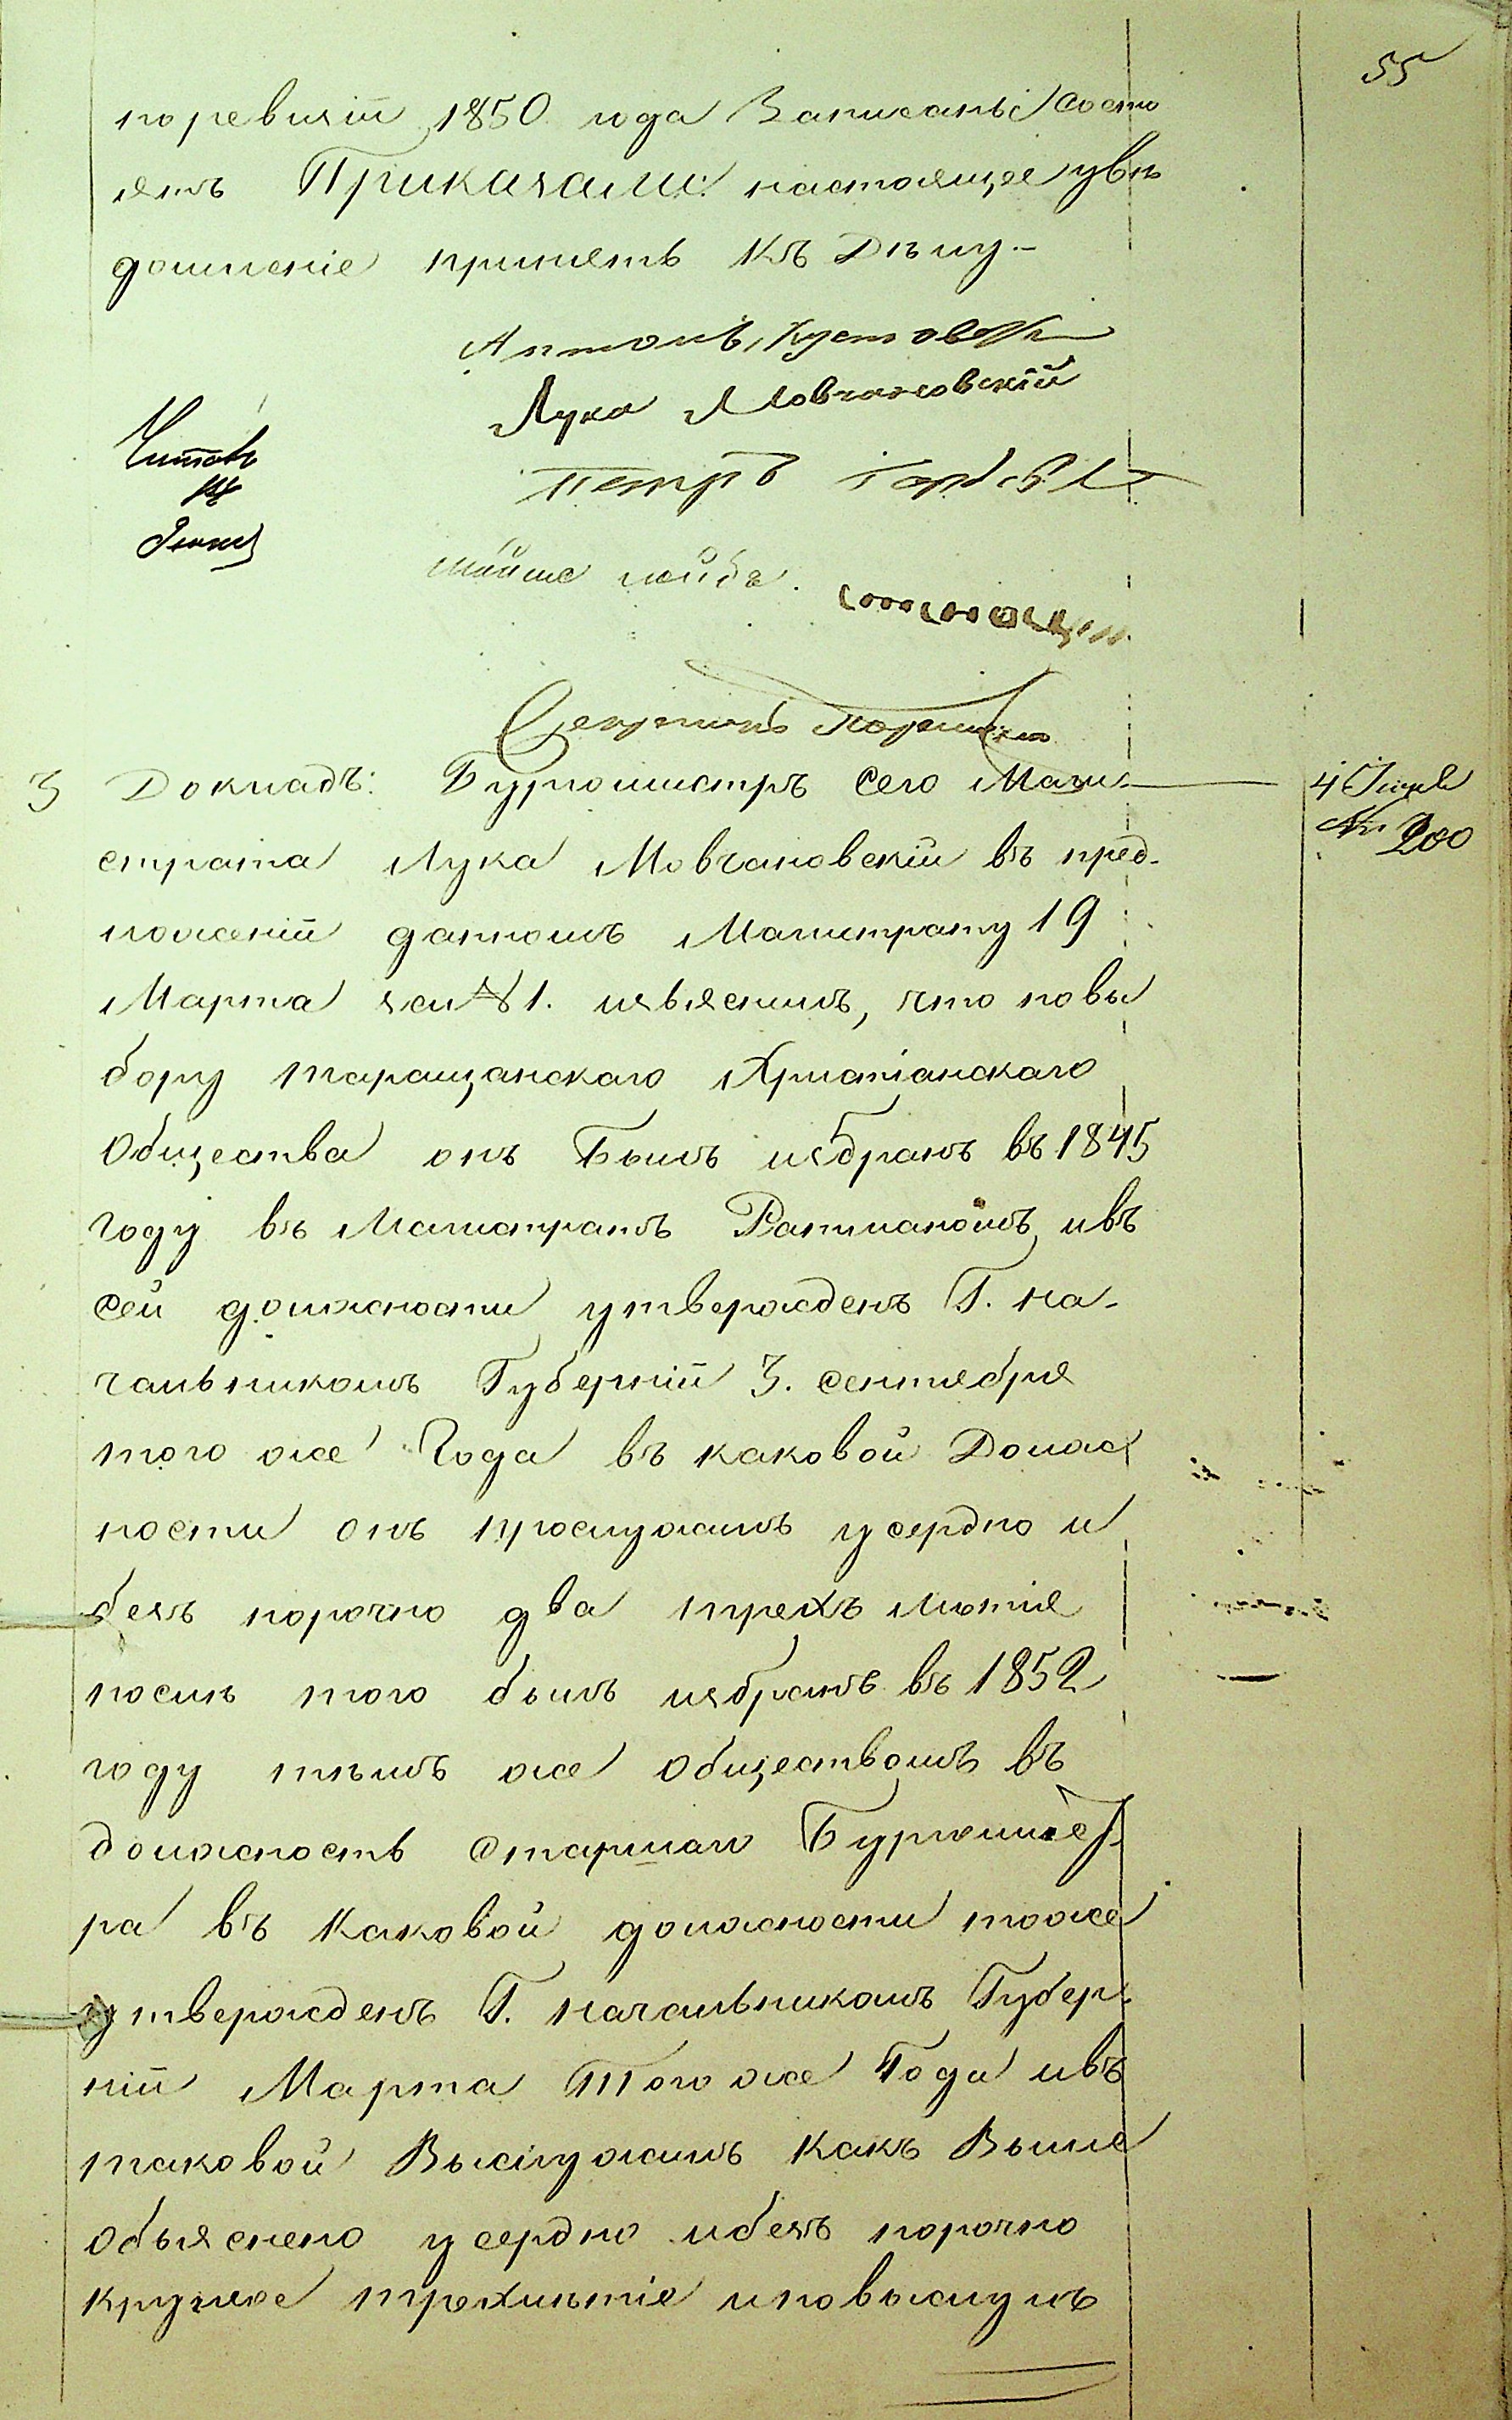 55
поревизіи 1850 года Записаны Состо
ятъ Приказали: настоящее увѣ
домленіе принять Къ Дѣлу.-
Антонъ
Лука Мовчановскій
Петръ
Читалъ
3 Докладъ: Бургомистръ Сего Маги-
4 Іюля
№ 200
страта Лука Мовчановскій въ пред-
ложеніи данномъ Магистрату 19
Марта за №1. изъяснилъ, что повы
бору Таращанскаго Христіанскаго
Общества онъ Былъ избранъ въ 1845
году въ Магистратъ Ратманомъ ивъ
сей должности утвержденъ Г. на-
чальникомъ Губерніи 3. сентября
того же Года въ каковой Долж
ности онъ прослужилъ усердно и
безъ порочно два трехъ лѣтія
послѣ того былъ избранъ въ 1852
году тѣмъ же Обществомъ въ
должность Старшаго Бургомист-
ра въ Каковой должности тоже
утвержденъ Г. начальникомъ Губер-
ніи Марта Того же Года ивъ
таковой Выслужилъ Какъ Выше
Объяснено усердно ибезъ порочно
круглое трехлѣтіе иповыслугѣ